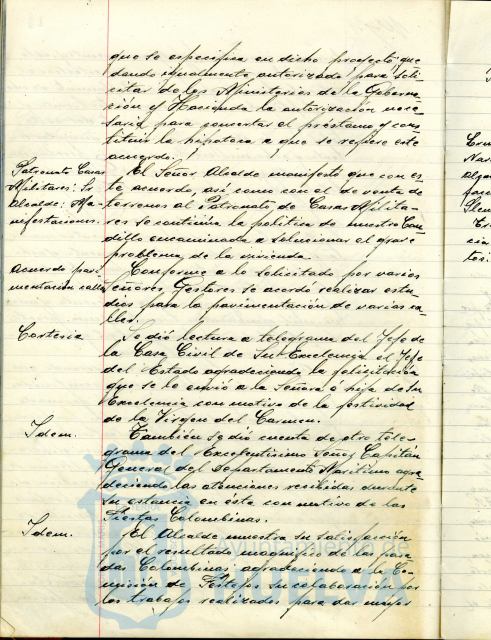 que se especifica en dicho proyecto que
dando igualmente autorizado para soli
citar de los Ministerios de la Goberna
ción y Hacienda la autorización nece
saria para concertar el préstamo y cons
tituir la hipoteca a que se refiere este
acuerdo.
Patronato Casas
Militares: Sr.
Alcalde: Ma-
nifestaciones.
El Señor Alcalde manifestó que con es
te acuerdo, así como con el de venta de
terrenos al Patronato de Casas Milita-
res se continúa la política de nuestro Cau
dillo encaminada a solucionar el grave
problema de la vivienda.
Acuerdo pavi-
mentación calles
Conforme a lo solicitado por varios
señores Gestores se acordó realizar estu
dios para la pavimentación de varias ca
lles.
Cortesía
Se dió lectura a telegrama del Jefe de
la Casa Civil de Su Excelencia el Jefe
del Estado agradeciendo la felicitación
que se le envió a la Señora é hija de Su
Excelencia con motivo de la festividad
de la Virgen del Carmen.
Idem.
También se dió cuenta de otro tele-
grama del Excelentísimo Señor Capitán
General del Departamento Marítimo agra-
deciendo las atenciones recibidas durante
su estancia en ésta con motivo de las
Fiestas Colombinas.
Idem.
El Alcalde muestra su satisfacción
por el resultado magnífico de las pasa
das Colombinas agradeciendo a la Co-
misión de Festejos su colaboración por
los trabajos realizados para dar mayor
Ayuntamiento de
HUELVA